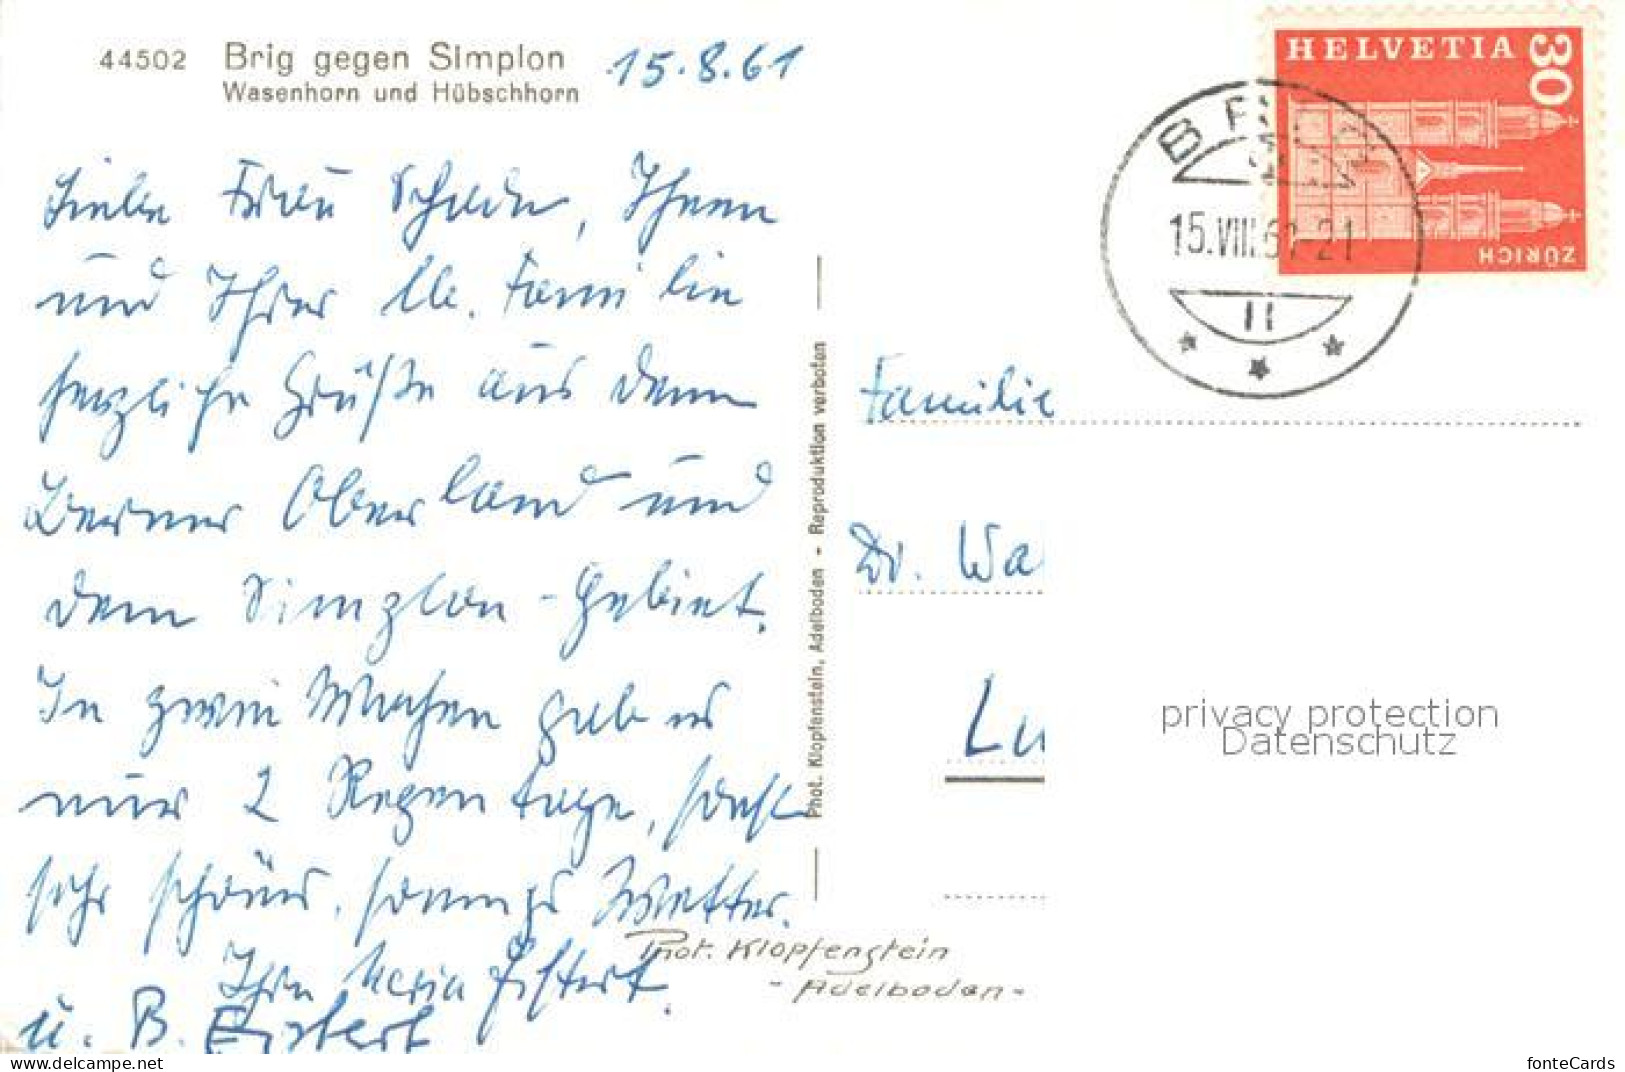 44502 Brig gegen Simplon 15.8.61
Wasenhorn und Hübschhorn
Liebe Frau Schade, Ihnen
und Ihrer lb. Familie
herzliche Grüße aus dem
Berner Oberland und
dem Simplon-Gebiet.
In zwei Wochen gab es
nur 2 Regentage, sonst
sehr schönes, sonniges Wetter.
Ihre Maria
u. B.
Phot. Klopfenstein, Adelboden - Reproduktion verboten
Phot. Klopfenstein
- Adelboden -
HELVETIA 30
ZÜRICH
BRIG
15.VIII.61-21
Familie
Dr. Wa
Lu
privacy protection
Datenschutz
www.delcampe.net
fonteCards